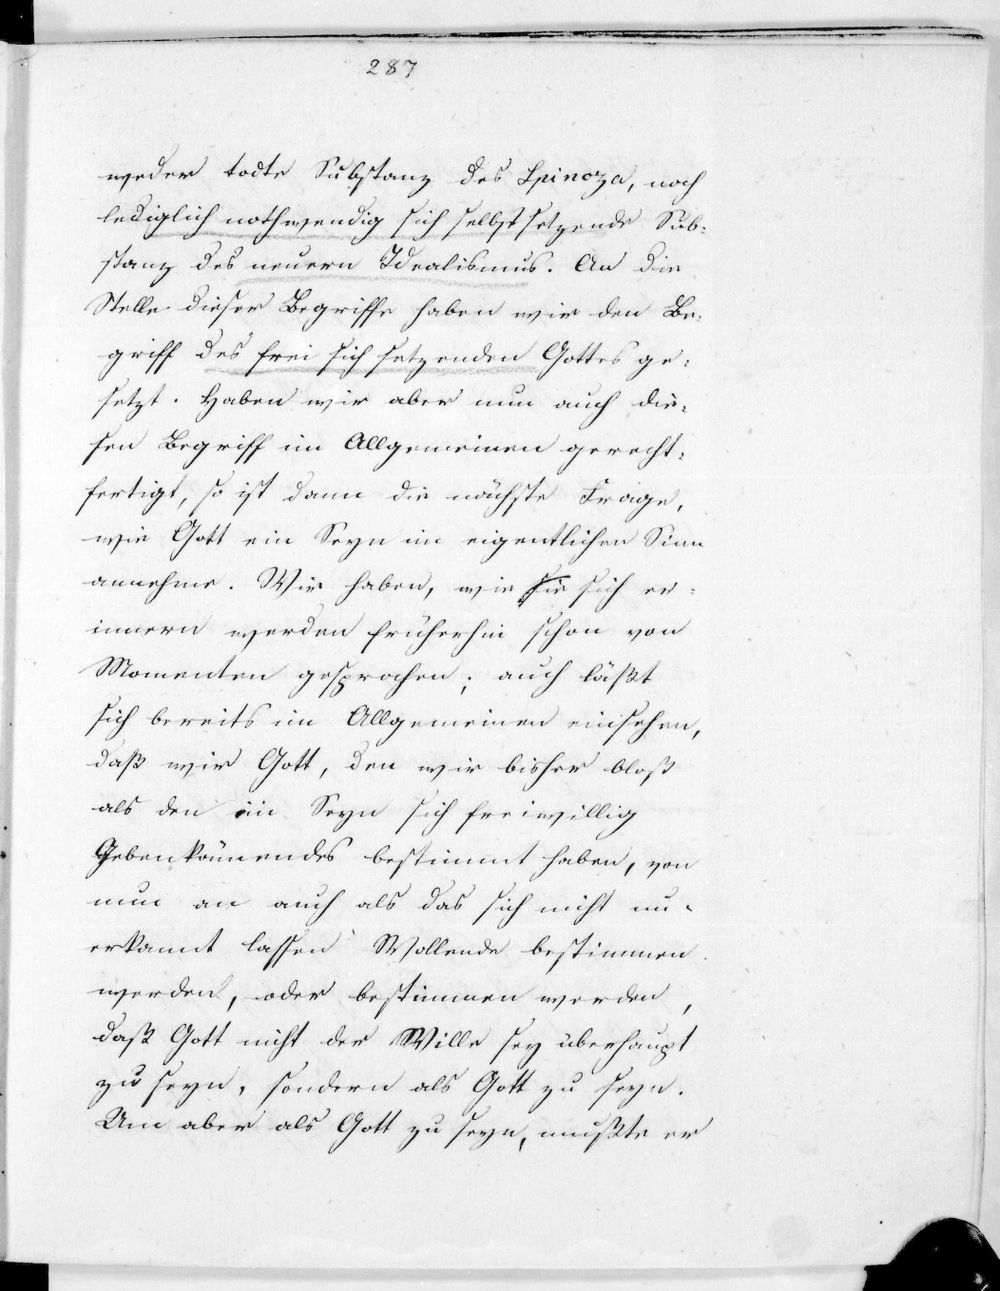 287
weder todte Substanz des Spinoza, noch
lediglich nothwendig sich selbst setzende Sub-
stanz des neuern Idealismus. An die
Stelle dieser Begriffe haben wir den Be-
griff des frei sich setzenden Gottes ge-
setzt. Haben wir aber nun auch die-
sen Begriff im Allgemeinen gerecht-
fertigt, so ist dann die nächste Frage,
wie Gott ein Seyn im eigentlichen Sinn
annehme. Wir haben, wie sie sich er-
innern werden früherhin schon von
Momenten gesprochen; auch läßt
sich bereits im Allgemeinen einsehen,
daß wir Gott, den wir bisher bloß
als den ein Seyn sich freiwillig
Gebenkönnendes bestimmt haben, von
nun an auch als das sich nicht un-
erkannt lassen Wollende bestimmen
werden, oder bestimmen werden,
daß Gott nicht der Wille sey überhaupt
zu seyn, sondern als Gott zu seyn.
Um aber als Gott zu seyn, mußte er